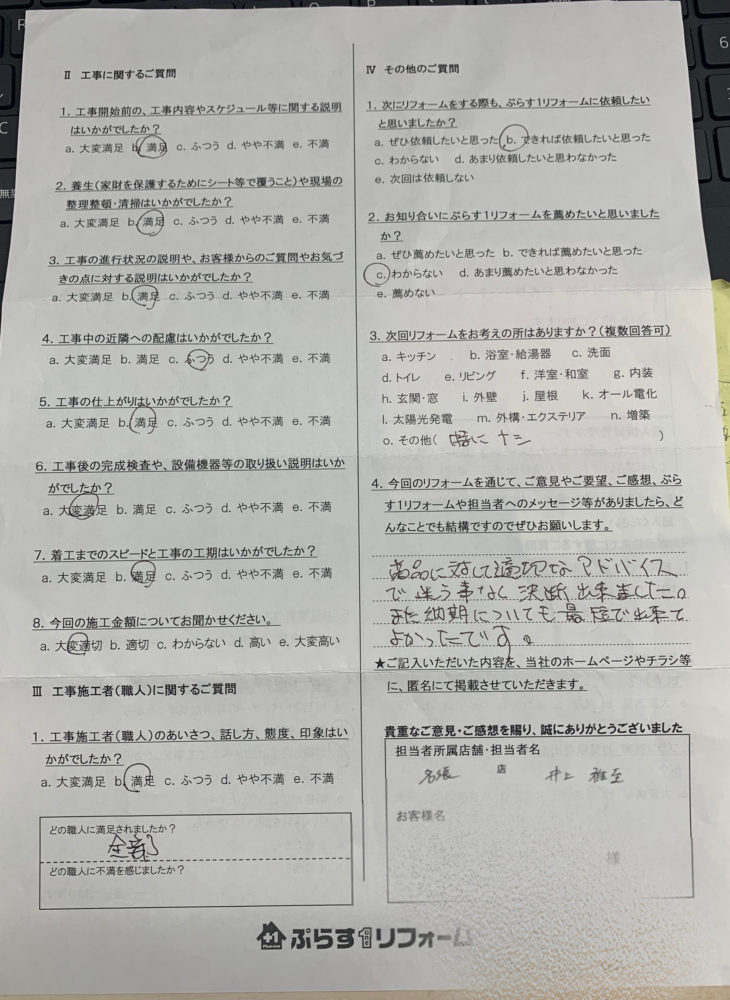 Ⅱ 工事に関するご質問
1. 工事開始前の、工事内容やスケジュール等に関する説明
はいかがでしたか？
a. 大変満足 b. 満足 c. ふつう d. やや不満 e. 不満
2. 養生（家財を保護するためにシート等で覆うこと）や現場の
整理整頓・清掃はいかがでしたか？
a. 大変満足 b. 満足 c. ふつう d. やや不満 e. 不満
3. 工事の進行状況の説明や、お客様からのご質問やお気づ
きの点に対する説明はいかがでしたか？
a. 大変満足 b. 満足 c. ふつう d. やや不満 e. 不満
4. 工事中の近隣への配慮はいかがでしたか？
a. 大変満足 b. 満足 c. ふつう d. やや不満 e. 不満
5. 工事の仕上がりはいかがでしたか？
a. 大変満足 b. 満足 c. ふつう d. やや不満 e. 不満
6. 工事後の完成検査や、設備機器等の取り扱い説明はいか
がでしたか？
a. 大変満足 b. 満足 c. ふつう d. やや不満 e. 不満
7. 着工までのスピードと工事の工期はいかがでしたか？
a. 大変満足 b. 満足 c. ふつう d. やや不満 e. 不満
8. 今回の施工金額についてお聞かせください。
a. 大変適切 b. 適切 c. わからない d. 高い e. 大変高い
Ⅲ 工事施工者（職人）に関するご質問
1. 工事施工者（職人）のあいさつ、話し方、態度、印象はい
かがでしたか？
a. 大変満足 b. 満足 c. ふつう d. やや不満 e. 不満
どの職人に満足されましたか？
全部
どの職人に不満を感じましたか？
Ⅳ その他のご質問
1. 次にリフォームをする際も、ぷらす1リフォームに依頼したい
と思いましたか？
a. ぜひ依頼したいと思った b. できれば依頼したいと思った
c. わからない d. あまり依頼したいと思わなかった
e. 次回は依頼しない
2. お知り合いにぷらす1リフォームを薦めたいと思いました
か？
a. ぜひ薦めたいと思った b. できれば薦めたいと思った
c. わからない d. あまり薦めたいと思わなかった
e. 薦めない
3. 次回リフォームをお考えの所はありますか？（複数回答可）
a. キッチン b. 浴室・給湯器 c. 洗面
d. トイレ e. リビング f. 洋室・和室 g. 内装
h. 玄関・窓 i. 外壁 j. 屋根 k. オール電化
l. 太陽光発電 m. 外構・エクステリア n. 増築
o. その他（ 特に ナシ ）
4. 今回のリフォームを通じて、ご意見やご要望、ご感想、ぷら
す1リフォームや担当者へのメッセージ等がありましたら、ど
んなことでも結構ですのでぜひお願いします。
商品に対して適切なアドバイス
で迷う事なく決断出来ました。
また納期についても最短で出来て
よかったです。
★ご記入いただいた内容を、当社のホームページやチラシ等
に、匿名にて掲載させていただきます。
貴重なご意見・ご感想を賜り、誠にありがとうございました
担当者所属店舗・担当者名
名張 店 井上 雅至
お客様名
様
+1 ぷらす1リフォーム